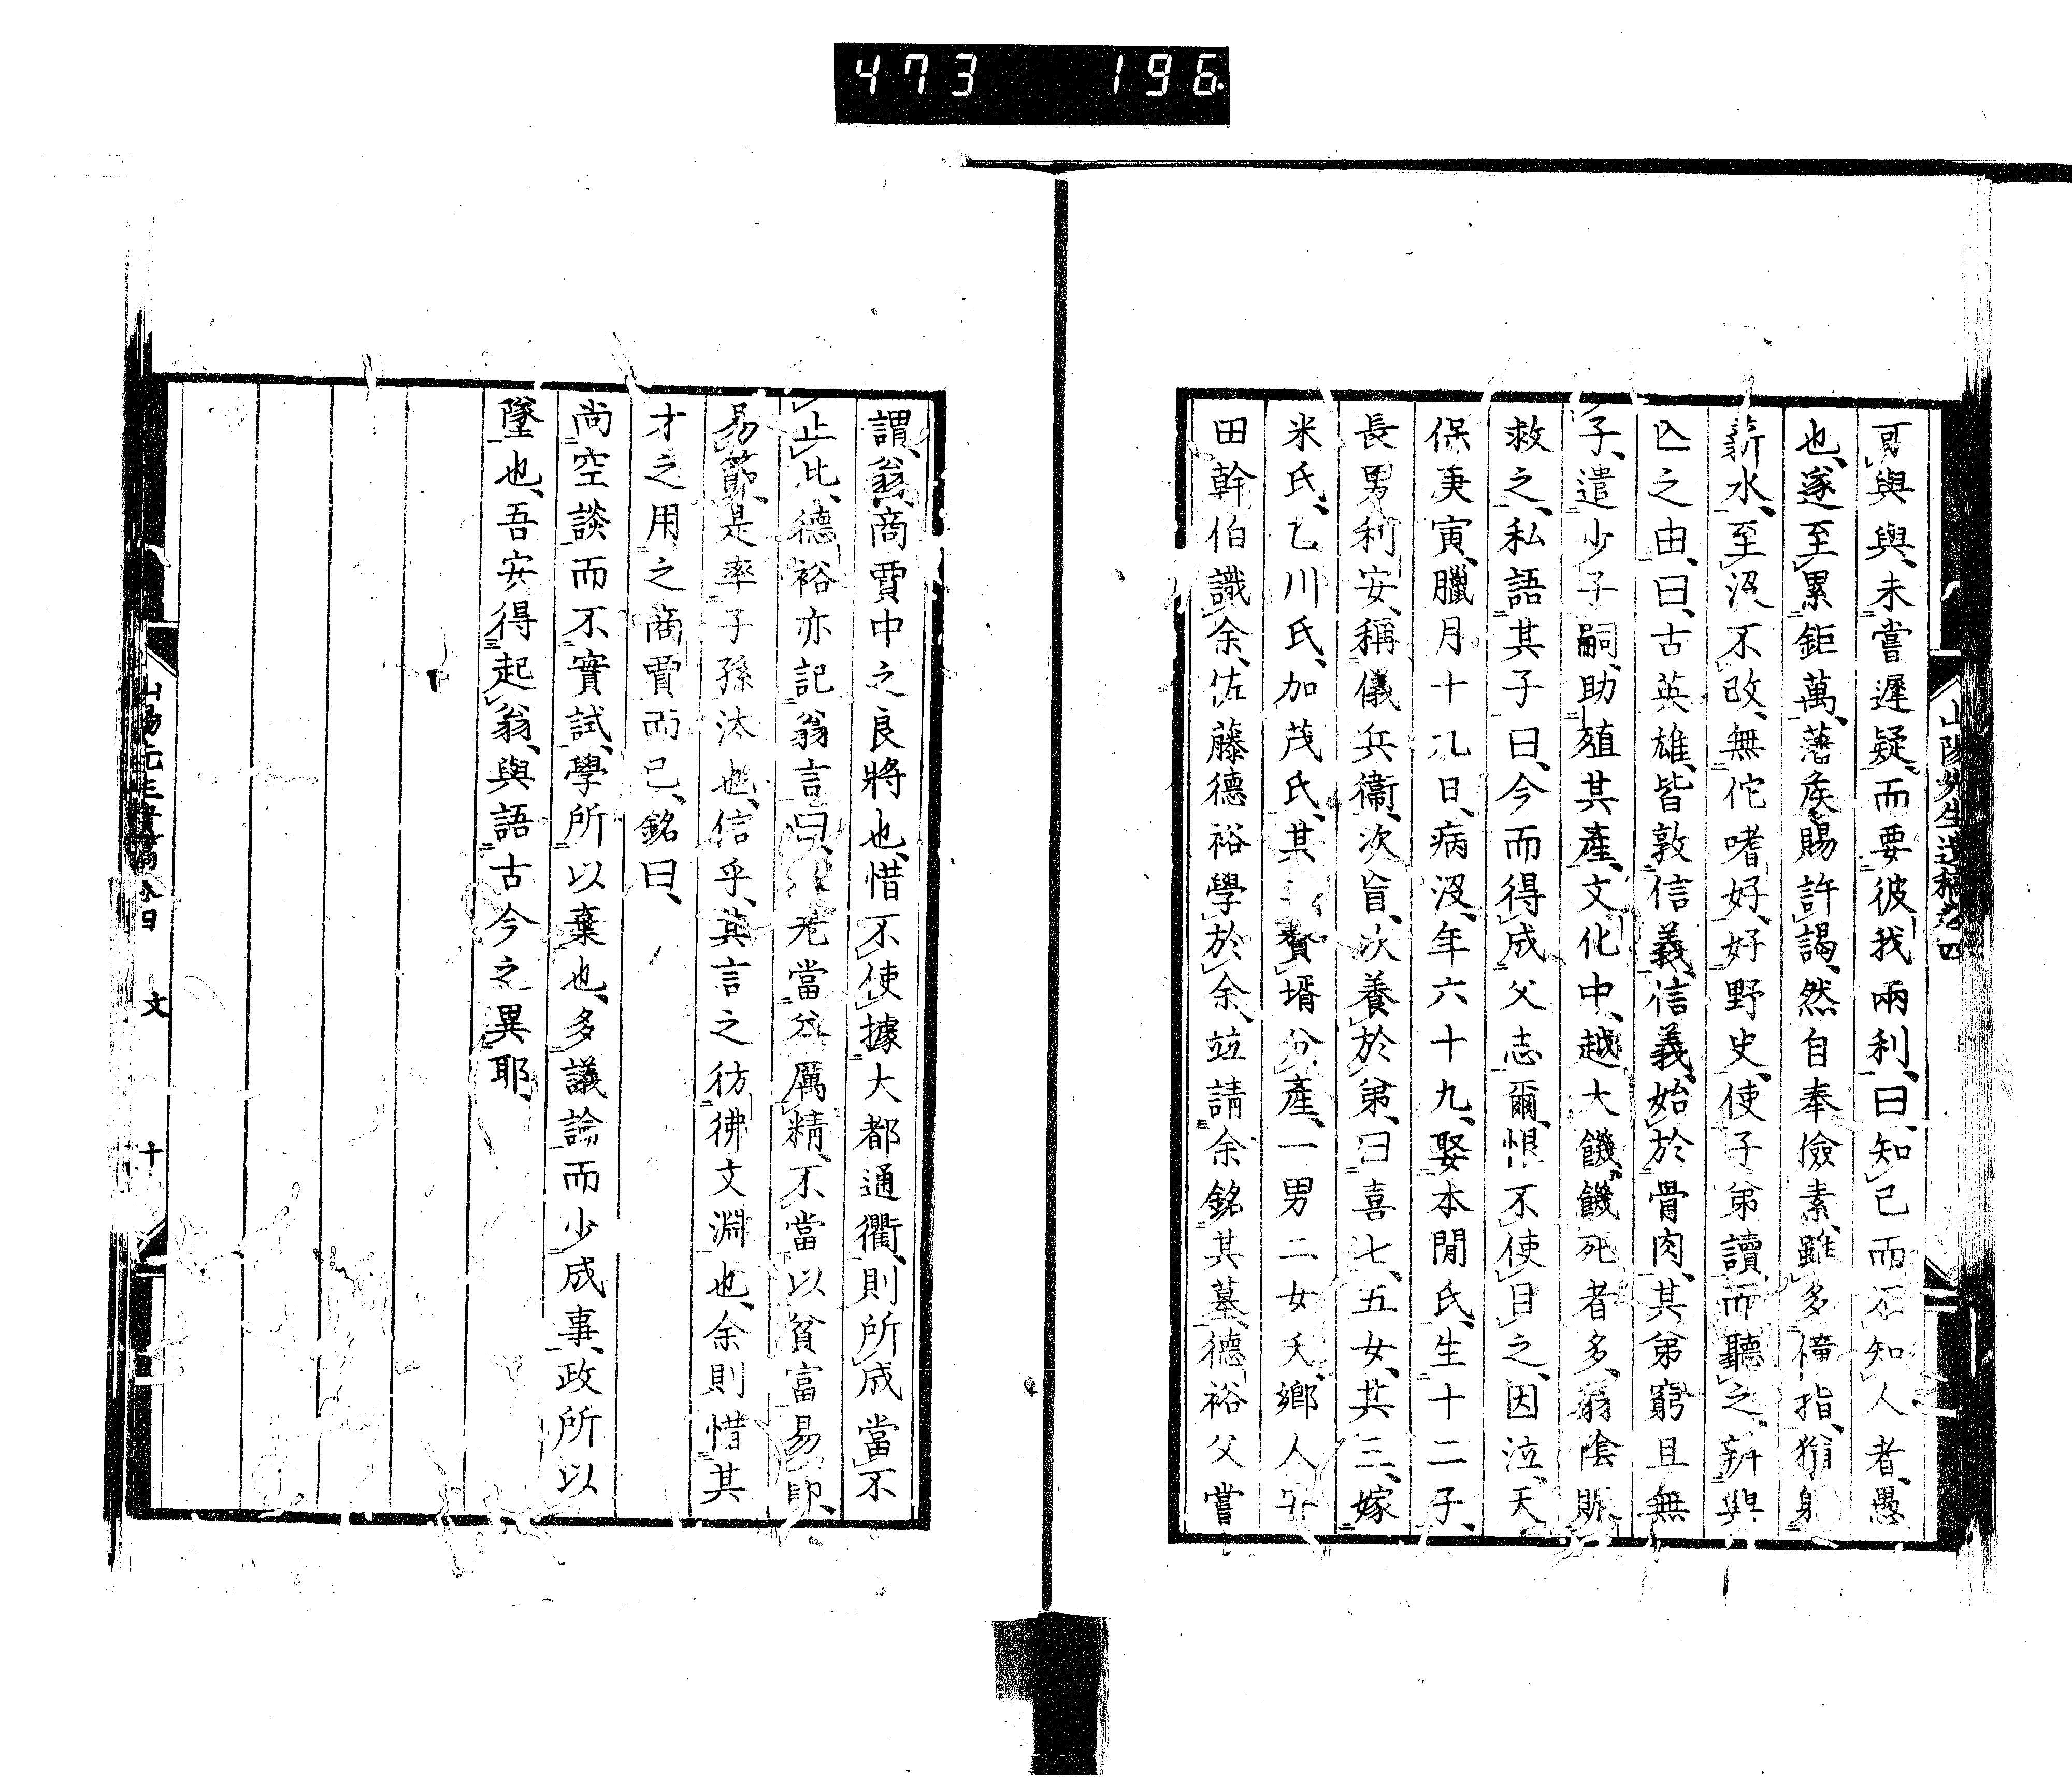 473 196
山陽先生遺稿卷四
可與與、未嘗遲疑、而要彼我兩利、曰、知已而不知人者、愚
也、遂至累鉅萬、藩侯賜許謁、然自奉儉素、雖多僮指、猶躬
薪水、至沒不改、無佗嗜好、好野史、使子弟讀而聽之、辨興
亾之由、曰、古英雄、皆敦信義、信義、始於骨肉、其弟窮且無
子、遣少子嗣、助殖其產、文化中、越大饑、饑死者多、翁陰賑
救之、私語其子曰、今而得成父志爾、恨不使目之、因泣、天
保庚寅、臘月十九日、病沒、年六十九、娶本間氏、生十二子、
長男利安、稱儀兵衞、次旨、次養於弟、曰喜七、五女、其三、嫁
米氏、乙川氏、加茂氏、其 贅壻分產、一男二女夭、鄉人
田幹伯識余、佐藤德裕學於余、竝請余銘其墓、德裕父嘗
謂、翁、商賈中之良將也、惜不使據大都通衢、則所成當不
止此、德裕亦記翁言曰、 老當益厲精、不當以貧富易節、
易節、是率子孫汰也、信乎、其言之彷彿文淵也、余則惜其
才之用之商賈而已、銘曰、
尚空談而不實試、學所以棄也、多議論而少成事、政所以
墜也、吾安得起翁、與語古今之異耶、
山陽先生遺稿卷四 文 十